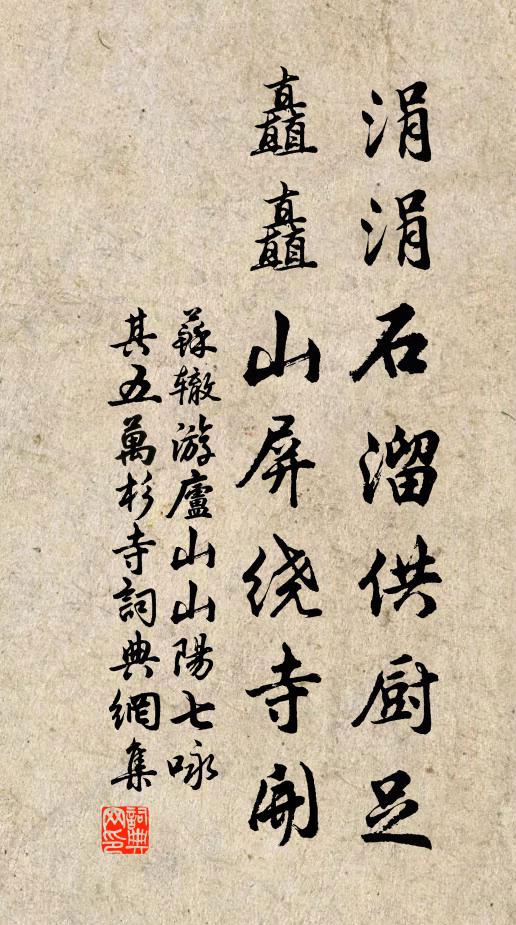 涓涓石溜供厨足
矗矗山屏绕寺開
蘇辙游廬山山陽七咏
其五萬杉寺詞典網集
詞典网印